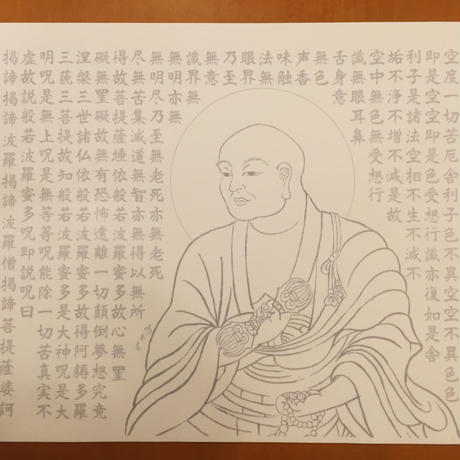 空度一切苦厄舎利子色不異空空不異色色
即是空空即是色受想行識亦復如是舎
利子是諸法空相不生不滅不
垢不浄不増不減是故
空中無色無受想行
識無眼耳鼻
舌身意
無色
声香
味触
法無
眼界
乃至
無意
識界無
無明亦無
無明尽乃至無老死亦無老死
尽無苦集滅道無智亦無得以無所
得故菩提薩埵依般若波羅蜜多故心無罣
礙無罣礙故無有恐怖遠離一切顛倒夢想究竟
涅槃三世諸仏依般若波羅蜜多故得阿耨多羅
三藐三菩提故知般若波羅蜜多是大神呪是大
明呪是無上呪是無等等呪能除一切苦真実不
虚故説般若波羅蜜多呪即説呪曰
掲諦掲諦波羅掲諦波羅僧掲諦菩提薩婆訶